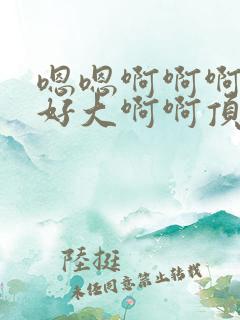 嗯嗯啊啊啊
好大啊啊頂
陸挺
未經同意禁止轉載